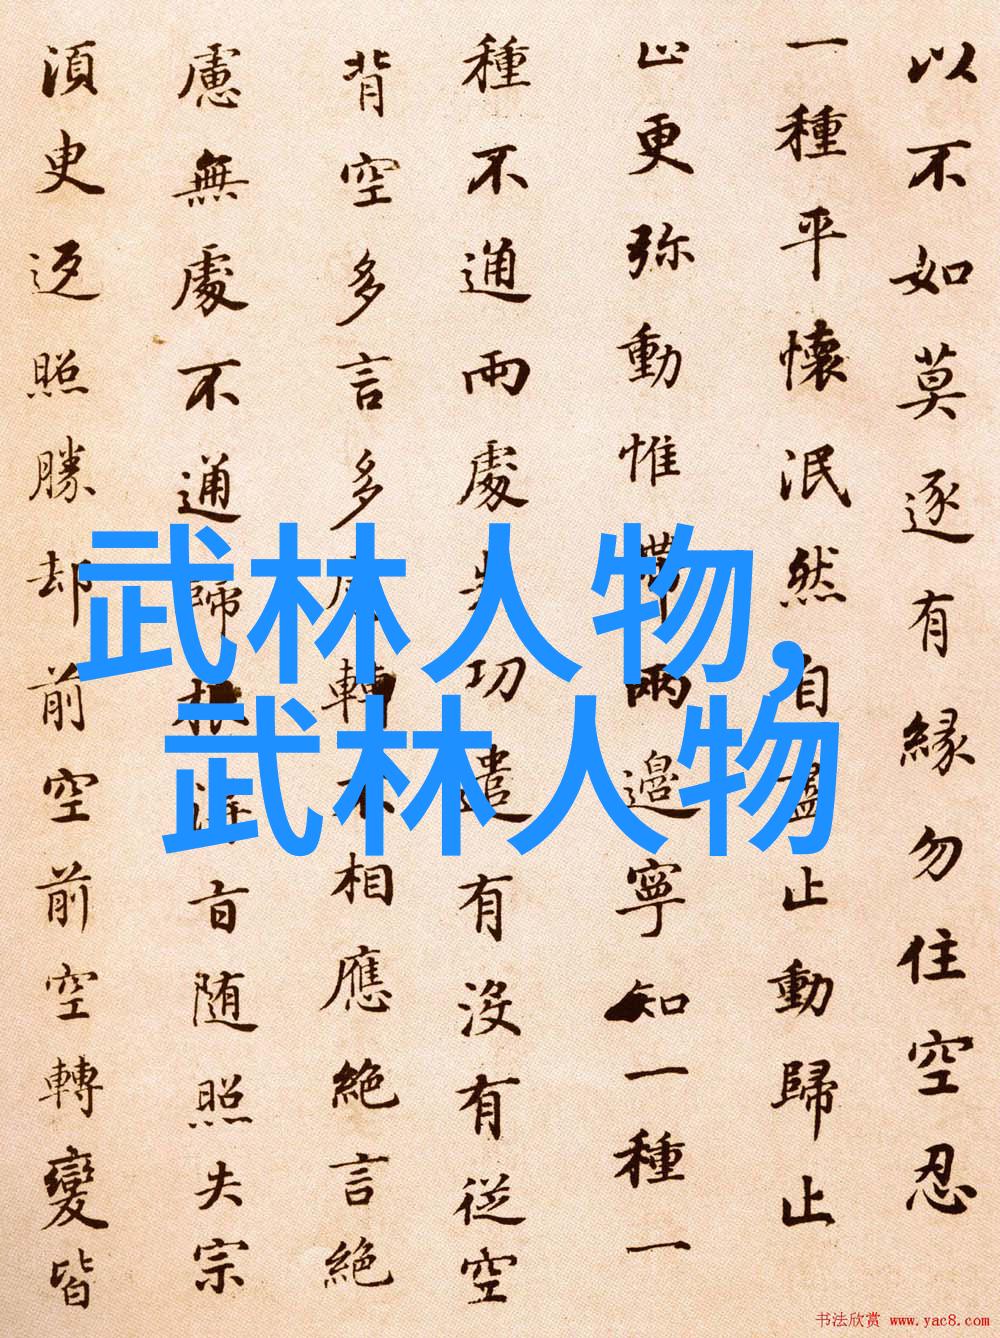 以不如莫逐有縁勿住空忍
一種平懷泯然自盡止動歸止
止更弥動惟滯兩邊寧知一種一
種不通兩處失功遣有沒有従空
背空多言多慮轉不相應絶言絶
慮無處不通歸根得旨随照失宗
須臾返照勝却前空前空轉變皆
武林人物,
武林人物
书法欣赏 www.yac8.com